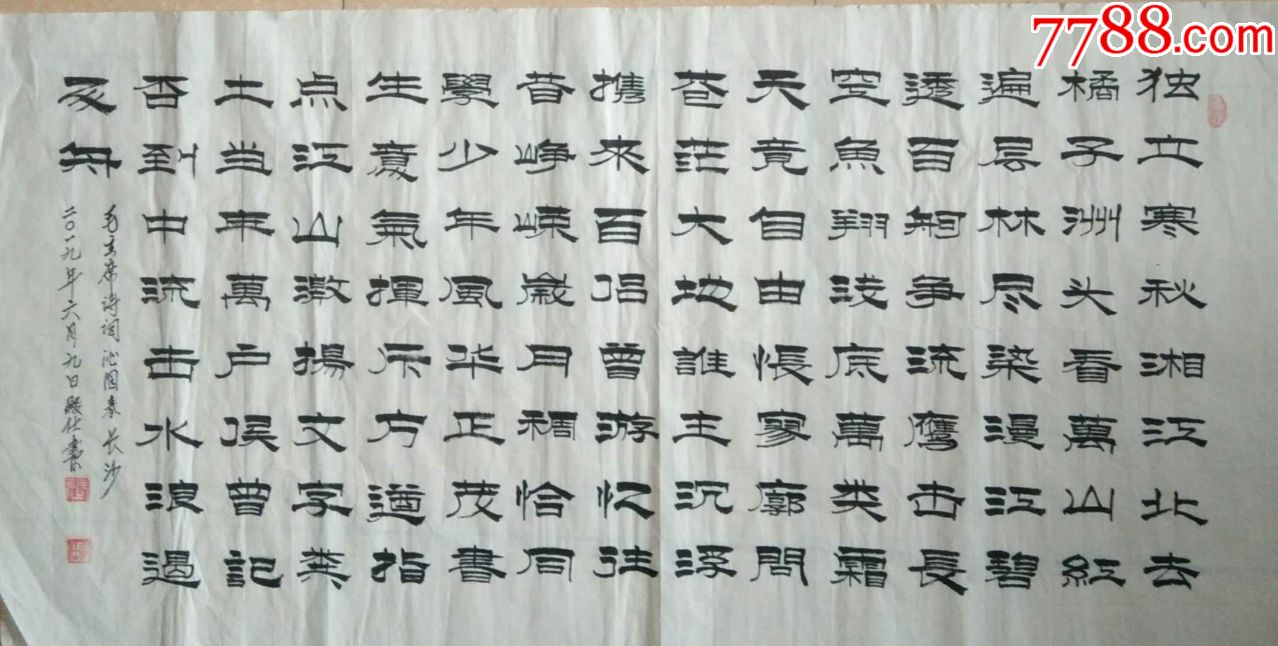 7788.com
独立寒秋湘江北去
橘子洲头看萬山红
遍层林尽染漫江碧
透百舸争流鹰击長
空魚翔浅底萬类霜
天竟自由悵寥廓問
苍茫大地誰主沉浮
携来百侣曾游忆往
昔峥嵘歲月稠恰同
學少年風华正茂書
生意氣揮斥方遒指
点江山激揚文字粪
土当年萬户侯曾記
否到中流击水浪遏
飞舟
毛主席诗词沁园春长沙
二〇一九年六月九日殿仕書